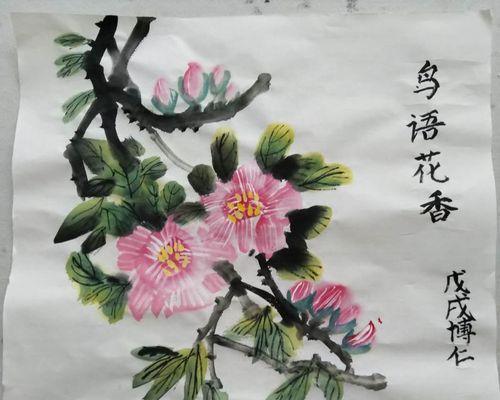 鸟语花香
戊戌博仁